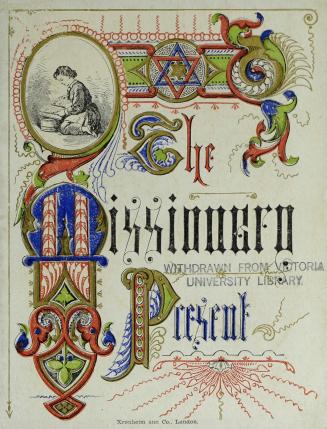 The
Missionary
WITHDRAWN FROM VICTORIA
UNIVERSITY LIBRARY
Present
Kronheim and Co., London.